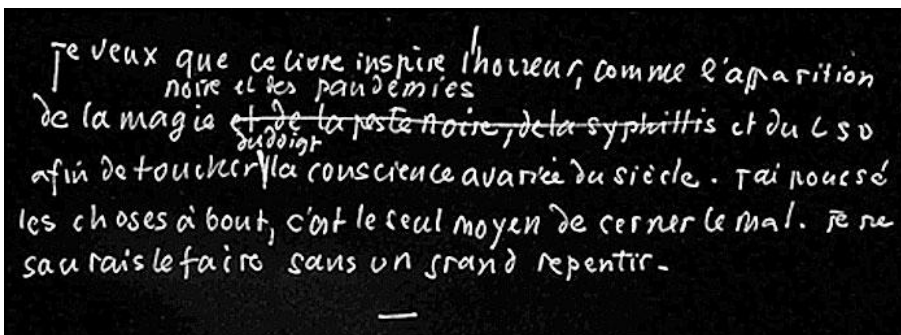 Je veux que ce livre inspire l'horreur, comme l'apparition
noire et des pandémies
de la magie et de la peste noire, de la syphillis et du LSD
du doigt
afin de toucher la conscience avariée du siècle. J'ai poussé
les choses à bout, c'est le seul moyen de cerner le mal. Je ne
saurais le faire sans un grand repentir.